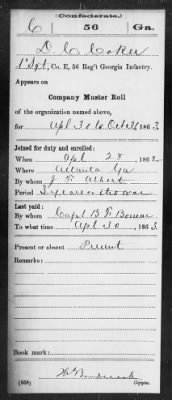 (Confederate.)
C 56 Ga.
D. C. Coker
1" Sgt, Co. E, 56 Reg't Georgia Infantry.
Appears on
Company Muster Roll
of the organization named above,
for Apl 30 to Oct 31, 1863.
Joined for duty and enrolled:
When Apl 28, 1862
Where Atlanta Ga
By whom J. F. Albert
Period 3 years or the war
Last paid:
By whom Capt B. F.
To what time Apl 30, 1863
Present or absent Present
Remarks:
Book mark:
Copyist.